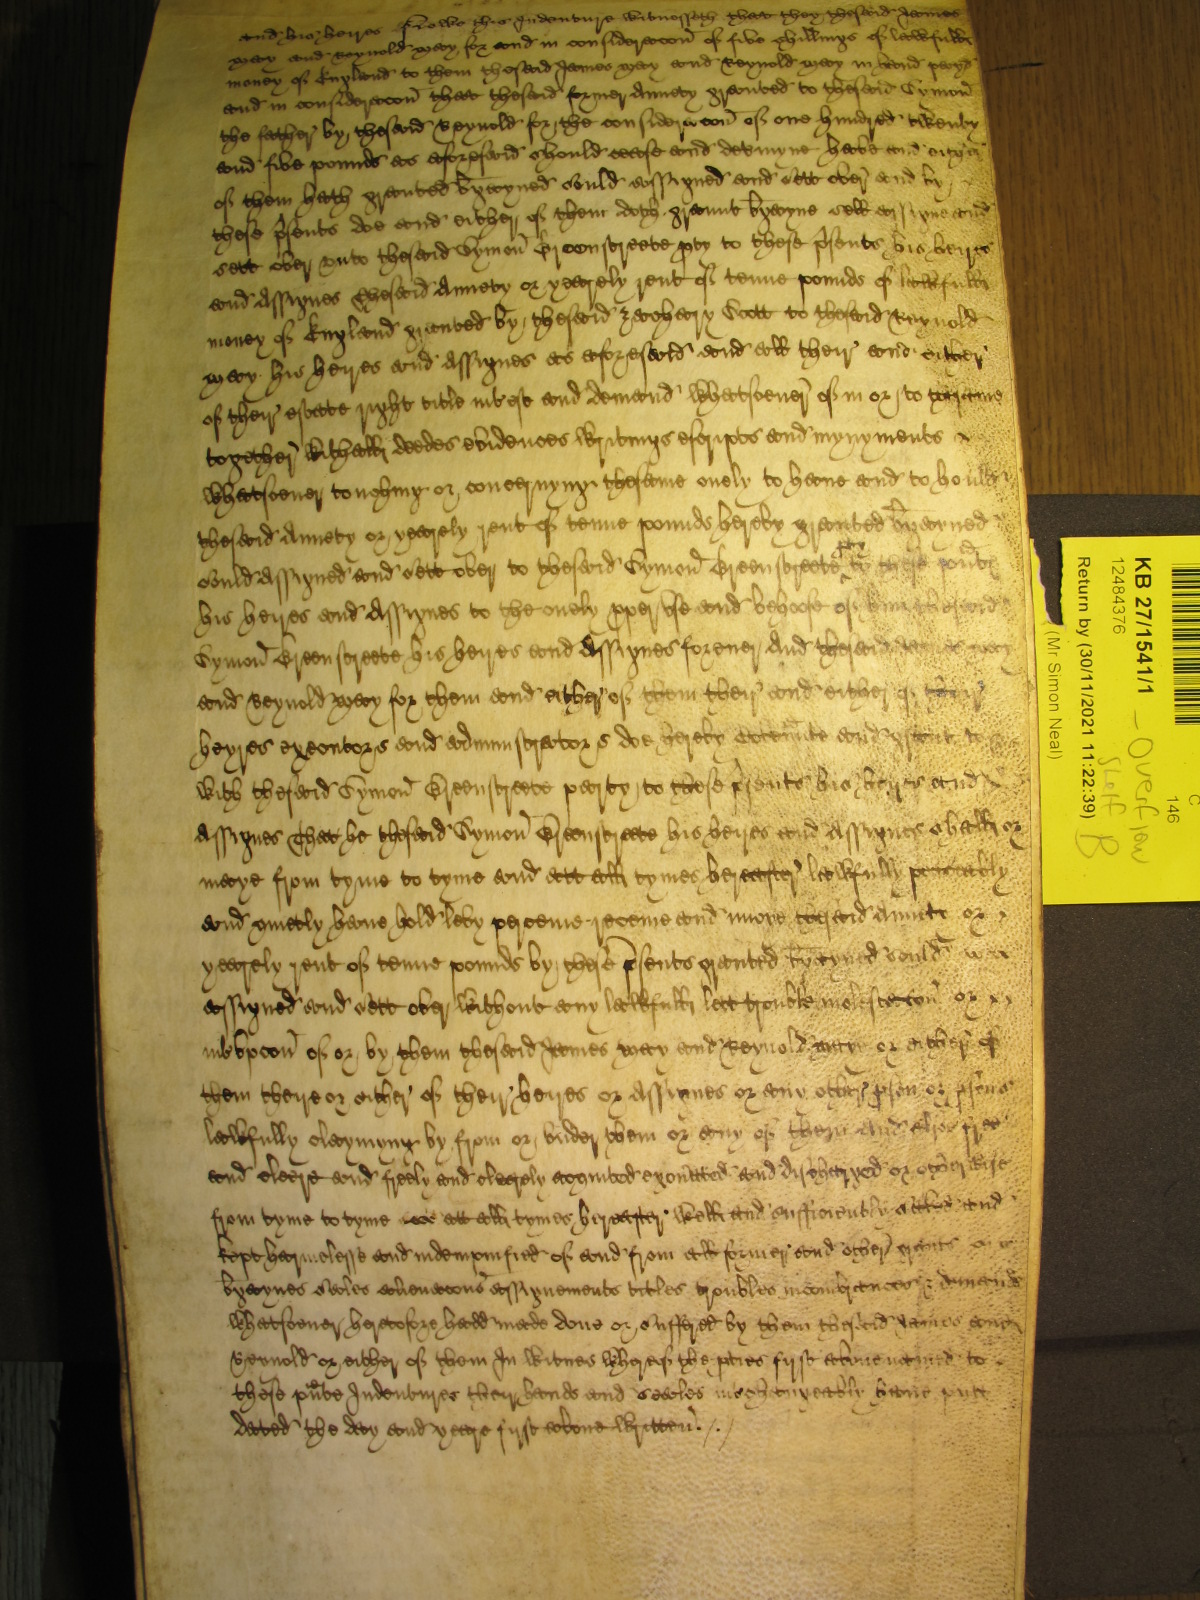 and his heires Nowe this Indenture witnesseth that they thesaid James
may and Reynold may for and in consideracon of five shillings of lawfull
money of England to them thesaid James may and Reynold may in hand payd
and in consideracon that thesaid former Annety graunted to thesaid Symon
the father by thesaid Reynold for the consideracon of one hundred twenty
and five pounds as aforesaid should cease and determyne have and either
of them hath graunted bargayned sould assigned and sett over and by
these psents doe and either of them doth graunt bargayne sell assigne and
sett over unto thesaid Symon Greenstreete pty to these psents his heires
and Assignes Thesaid Annety or yearely rent of tenne pounds of lawfull
money of England graunted by thesaid Zachary Scott to thesaid Reynold
may his heires and Assignes as aforesaid and all their and either
of their estate right title intrest and demand whatsoever of in or to thesame
together withall deedes evidences writings escripts and mynyments
whatsoever touching or concernyng thesame onely to have and to hould
thesaid Annety or yearely rent of tenne pounds hereby graunted bargayned
sould Assigned and sett over to thesaid Symon Greenstreete pty to these psents
his heires and Assignes to the onely pper use and behoofe of him thesaid
Symon Greenstreete his heires and Assignes forever And thesaid James may
and Reynold may for them and either of them their and either of their
heyres executors and administrators doe hereby covenante and graunt to
with thesaid Symon Greenstreete party to these psents his heires and
Assignes That he thesaid Symon Greenstreete his heires and Assignes shall or
maye from tyme to tyme and att all tymes hereafter lawfully peaceably
and quietly have hold levy perceive receive and injoye thesaid Annety or
yearely rent of tenne pounds by these psents graunted bargayned sould
assigned and sett over without any lawfull lett trouble molestacon or
interupcon of or by them thesaid James may and Reynold may or either of
them their or either of their heires or Assignes or any other pson or psons
lawfully claymyng by from or under them or any of them And also free
and cleere and freely and cleerely acquited exonerated and discharged or otherwise
from tyme to tyme att all tymes hereafter well and sufficiently saved and
kept harmelesse and indempnified of and from all former and other graunts
bargaynes sales alienacons assignements titles troubles incombrances demands
whatsoever heretofore hadd made done or suffered by them thesaid James and
Reynold or either of them In witnes whereof the pties first above named to
these pnte Indentures their hands and seales interchangeably have putt
dated the day and yeare first above written ./.
KB 27/1541/1 - Overflow
12484376
Shelf B
146
Return by (30/11/2021 11:22:39)
(Mr Simon Neal)